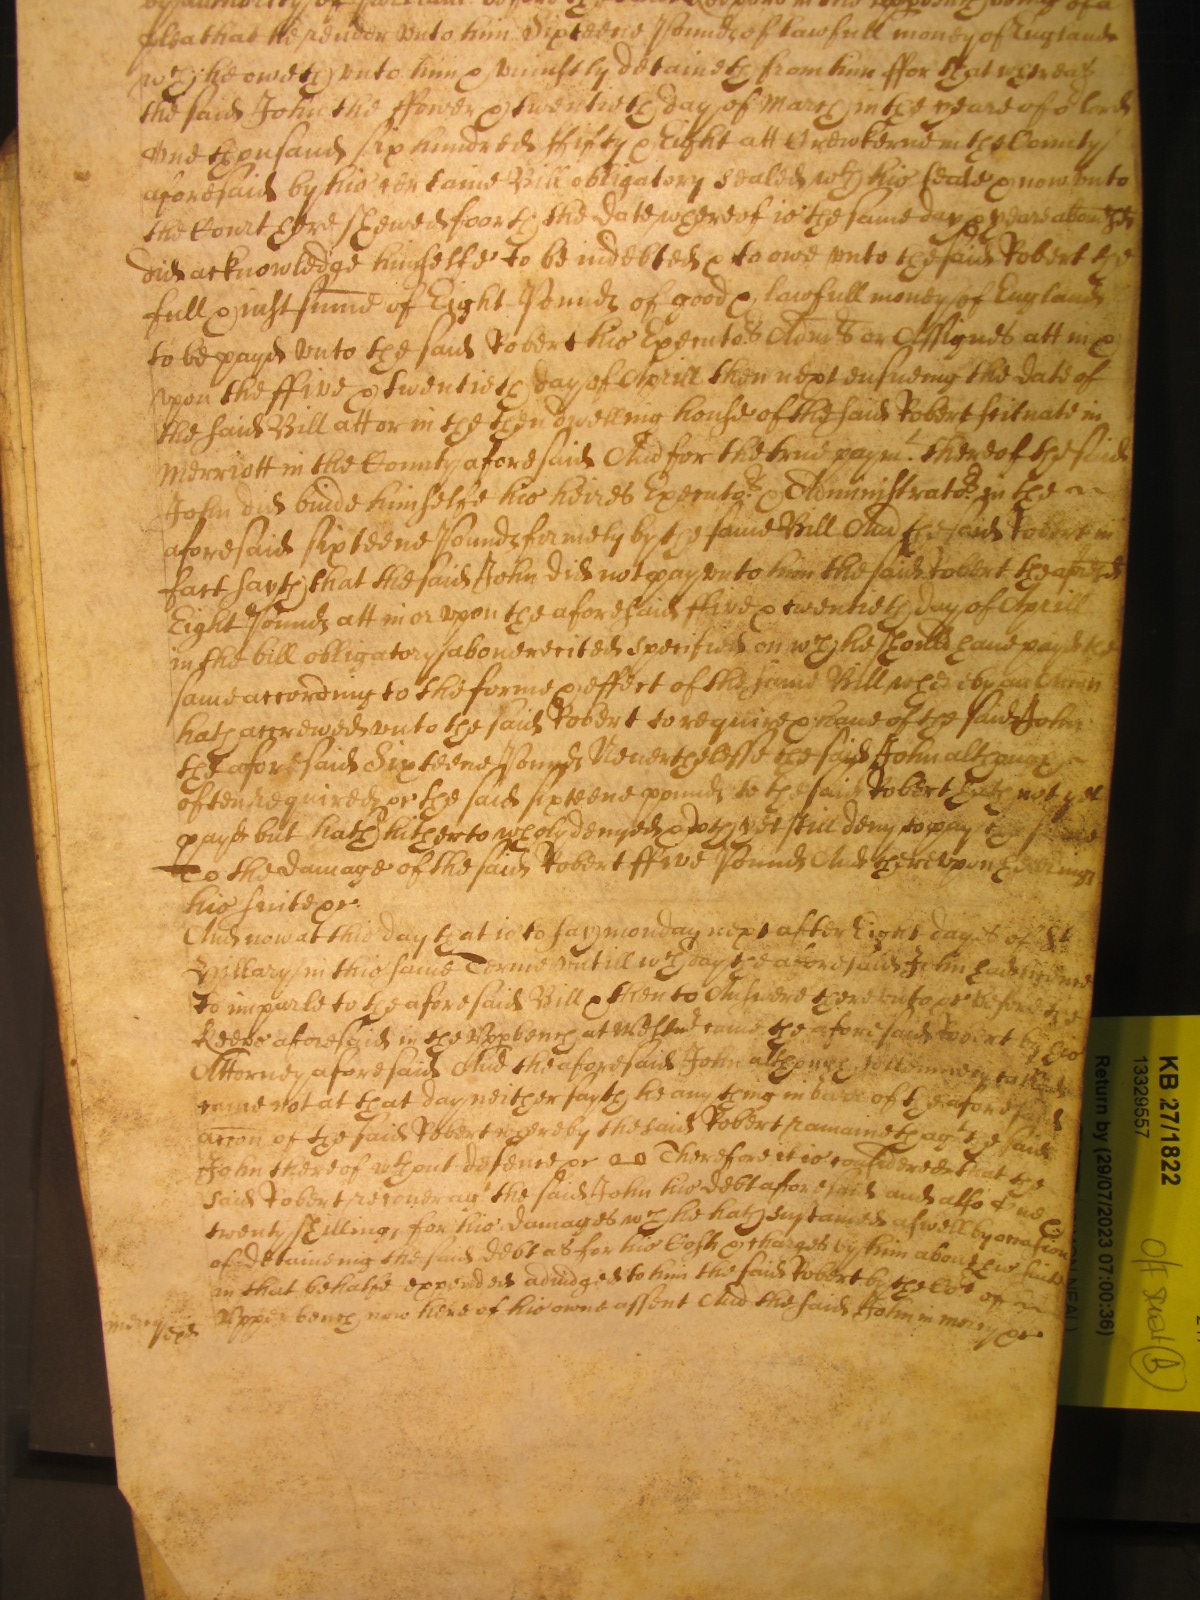 by authority of Parliament before the
plea that he render unto him Sixteene Pounds of lawfull money of England
wch he oweth unto him & uniustly detaineth from him ffor that whereas
the said John the ffower & twentieth day of March in the yeare of or lord
One thousand six hundred ffifty & Eight att Crewkerne in the County
aforesaid by his certaine Bill obligatory sealed wth his seale & now unto
the Court here shewed foorth the date whereof is the same day & yeare abovesd
did acknowledge himselfe to be indebted & to owe unto the said Robert the
full & iust summe of Eight Pounds of good & lawfull money of England
to be payd unto the said Robert his Executors Admrs or Assignes att in &
upon the ffive & twentieth day of Aprill then next ensueing the date of
the said Bill att or in the then dwelling house of the said Robert scituate in
Merriott in the County aforesaid And for the true paymt thereof the said
John did binde himselfe his heires Executors & Administrators in the
aforesaid sixteene Pounds firmely by the same Bill And the said Robert in
fact sayth that the said John did not pay unto him the said Robert the aforesd
Eight Pounds att in or upon the aforesaid ffive & twentieth day of Aprill
in the bill obligatory above recited specified on wch he should have payd the
same according to the forme & effect of the same Bill whereby an Accon
hath accrewed unto the said Robert to require & have of the said John
the aforesaid Sixteene Pounds Neverthelesse the said John although
often required &c the said sixteene pounds to the said Robert hath not yet
payd but hath hitherto wholy denyed & doth yet still deny to pay the same
To the damage of the said Robert ffive Pounds And thereupon he brings
his suite &c
And now at this day that is to say monday next after Eight dayes of St
Hillary in this same Terme untill wch day the aforesaid John had licence
to imparle to the aforesaid Bill & then to Answere thereunto &c before the
Keeps aforesaid in the Upp bench at Westmr came the aforesaid Robert by his
Attorney aforesaid And the aforesaid John although sollemnely called
came not at that day neither sayth he any thing in barr of the aforesaid
accon of the said Robert whereby the said Robert remaineth agt the said
John thereof wthout defence &c Therefore it is considered that the
said Robert recover agt the said John his debt aforesaid and also
twenty shillings for his damages wch he hath susteined aswell by occasion
of detaineing the said debt as for his Costs & charges by him about his suite
in that behalfe expended adiudged to him the said Robert by the Cot of
Upper bench now here of his owne assent And the said John in mercy &c
mercy
KB 27/1822
13329557
Return by (29/07/2023 07:00:36)
B